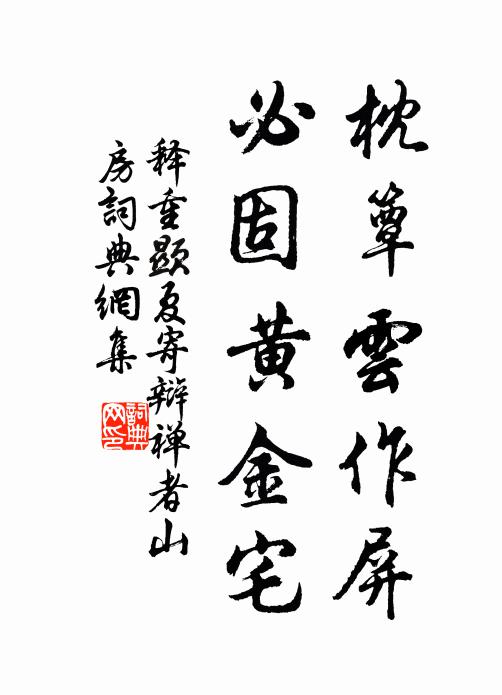 枕簟雲作屏
必固黄金宅
释重顯夏寄辯禅者山
房詞典網集
詞典网印